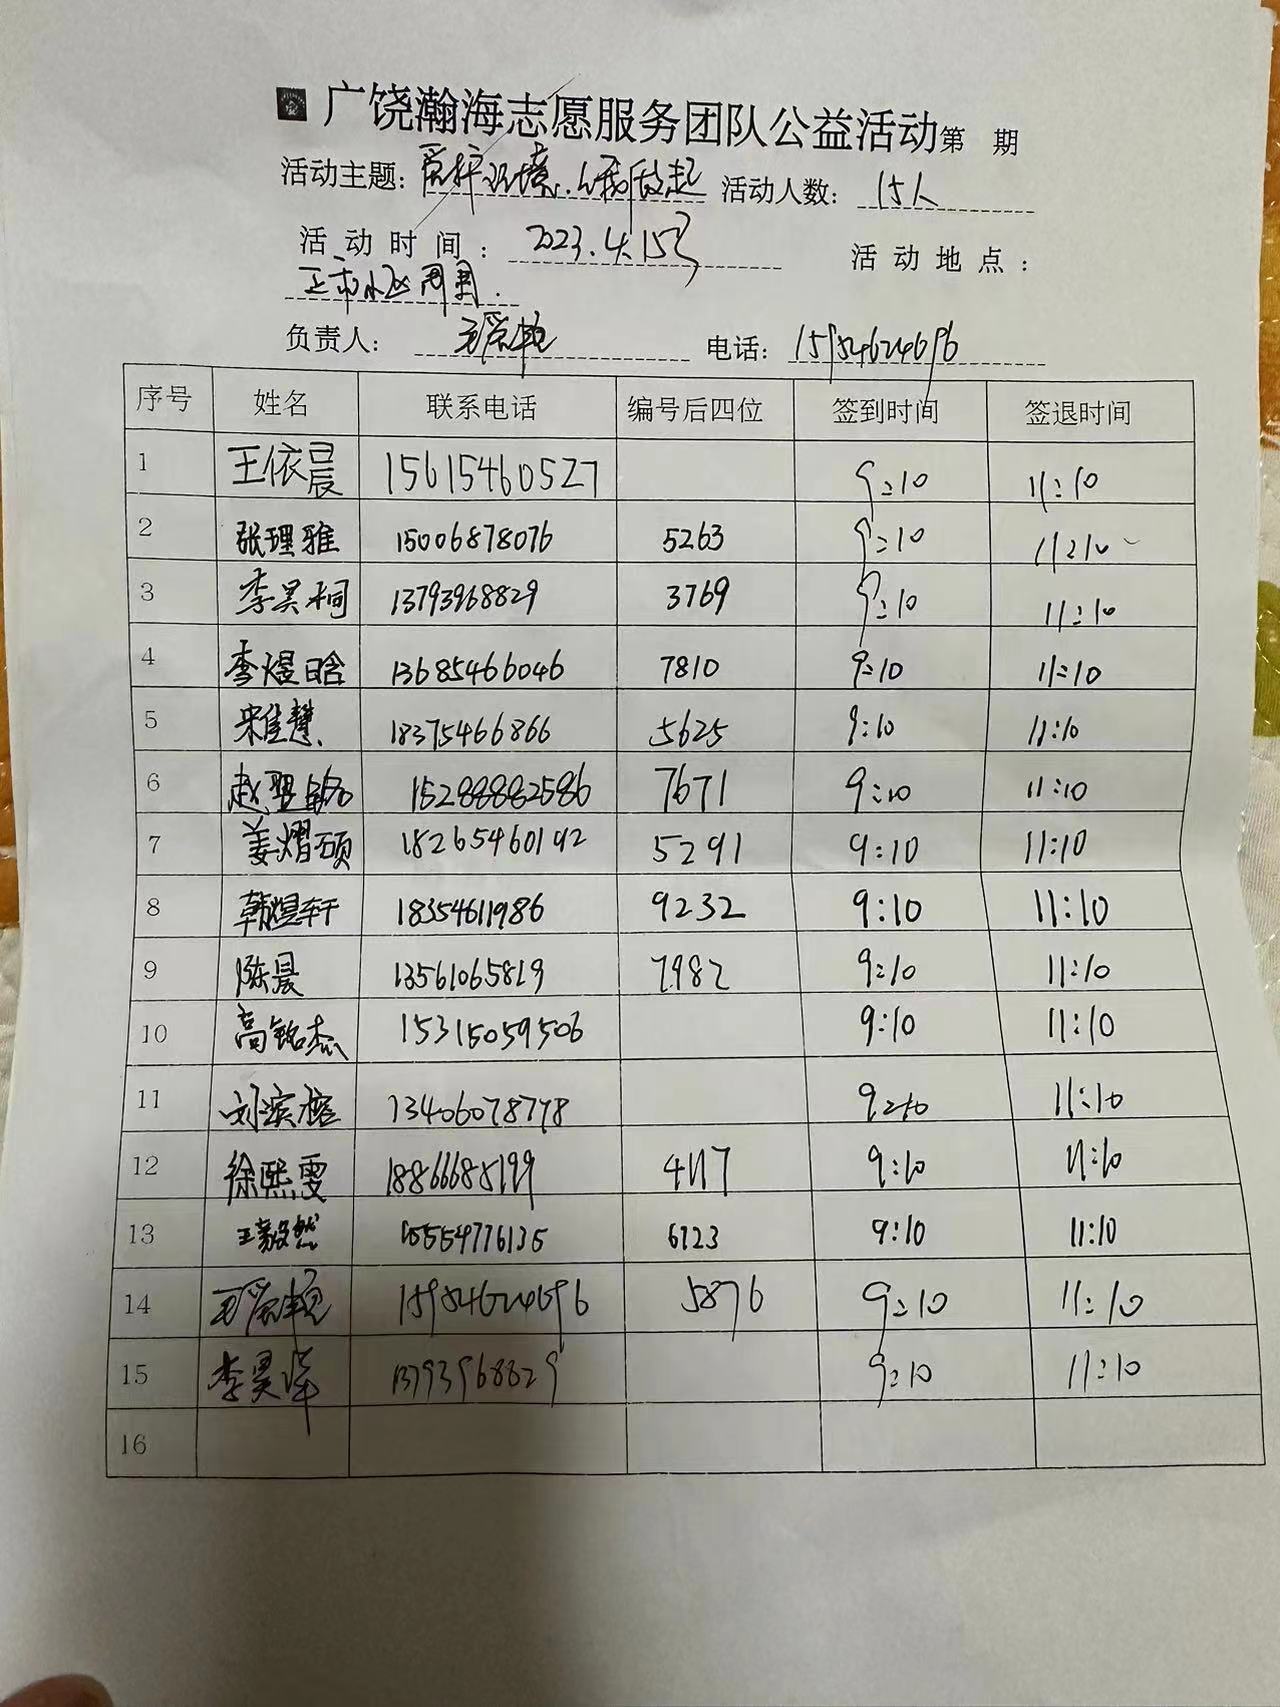 广饶瀚海志愿服务团队公益活动第 期
活动主题: 环境,从我做起 活动人数: 15人
活动时间: 2023.4.15号 活动地点:
小区周围.
负责人: 王爱艳 电话: 15954624696
序号 姓名 联系电话 编号后四位 签到时间 签退时间
1 王依晨 15615460527 9:10 11:10
2 张理雅 15006878076 5263 9:10 11:10
3 李昊桐 13793968829 3769 9:10 11:10
4 李煜晗 13685466046 7810 9:10 11:10
5 宋佳慧 18375466866 5625 9:10 11:10
6 赵翌铭 15288882586 7671 9:10 11:10
7 姜熠硕 18265460192 5291 9:10 11:10
8 韩煜轩 18354611986 9232 9:10 11:10
9 陈晨 13561065819 7982 9:10 11:10
10 高铭杰 15315059506 9:10 11:10
11 刘滨榕 13406078778 9:10 11:10
12 徐熙雯 18866685199 4117 9:10 11:10
13 王毅然 15554776135 6723 9:10 11:10
14 王爱艳 15954624696 5876 9:10 11:10
15 李昊泽 13793968829 9:10 11:10
16